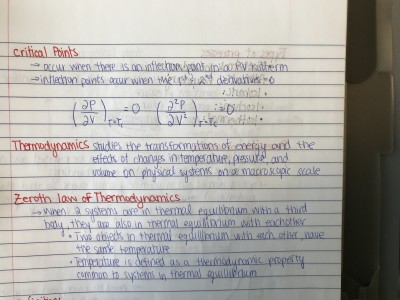 Critical Points
→ occur when there is an inflection point in a PV isotherm
→ inflection points occur when the 1st & 2nd derivatives = 0
(∂P/∂V)T=Tc = 0 (∂²P/∂V²)T=Tc = 0
Thermodynamics studies the transformations of energy and the
effects of changes in temperature, pressure, and
volume on physical systems on a macroscopic scale
Zeroth law of Thermodynamics
→ when 2 systems are in thermal equilibrium with a third
body, they are also in thermal equilibrium with eachother
• Two objects in thermal equilibrium with each other, have
the same temperature
• Temperature is defined as a thermodynamic property
common to systems in thermal equilibrium